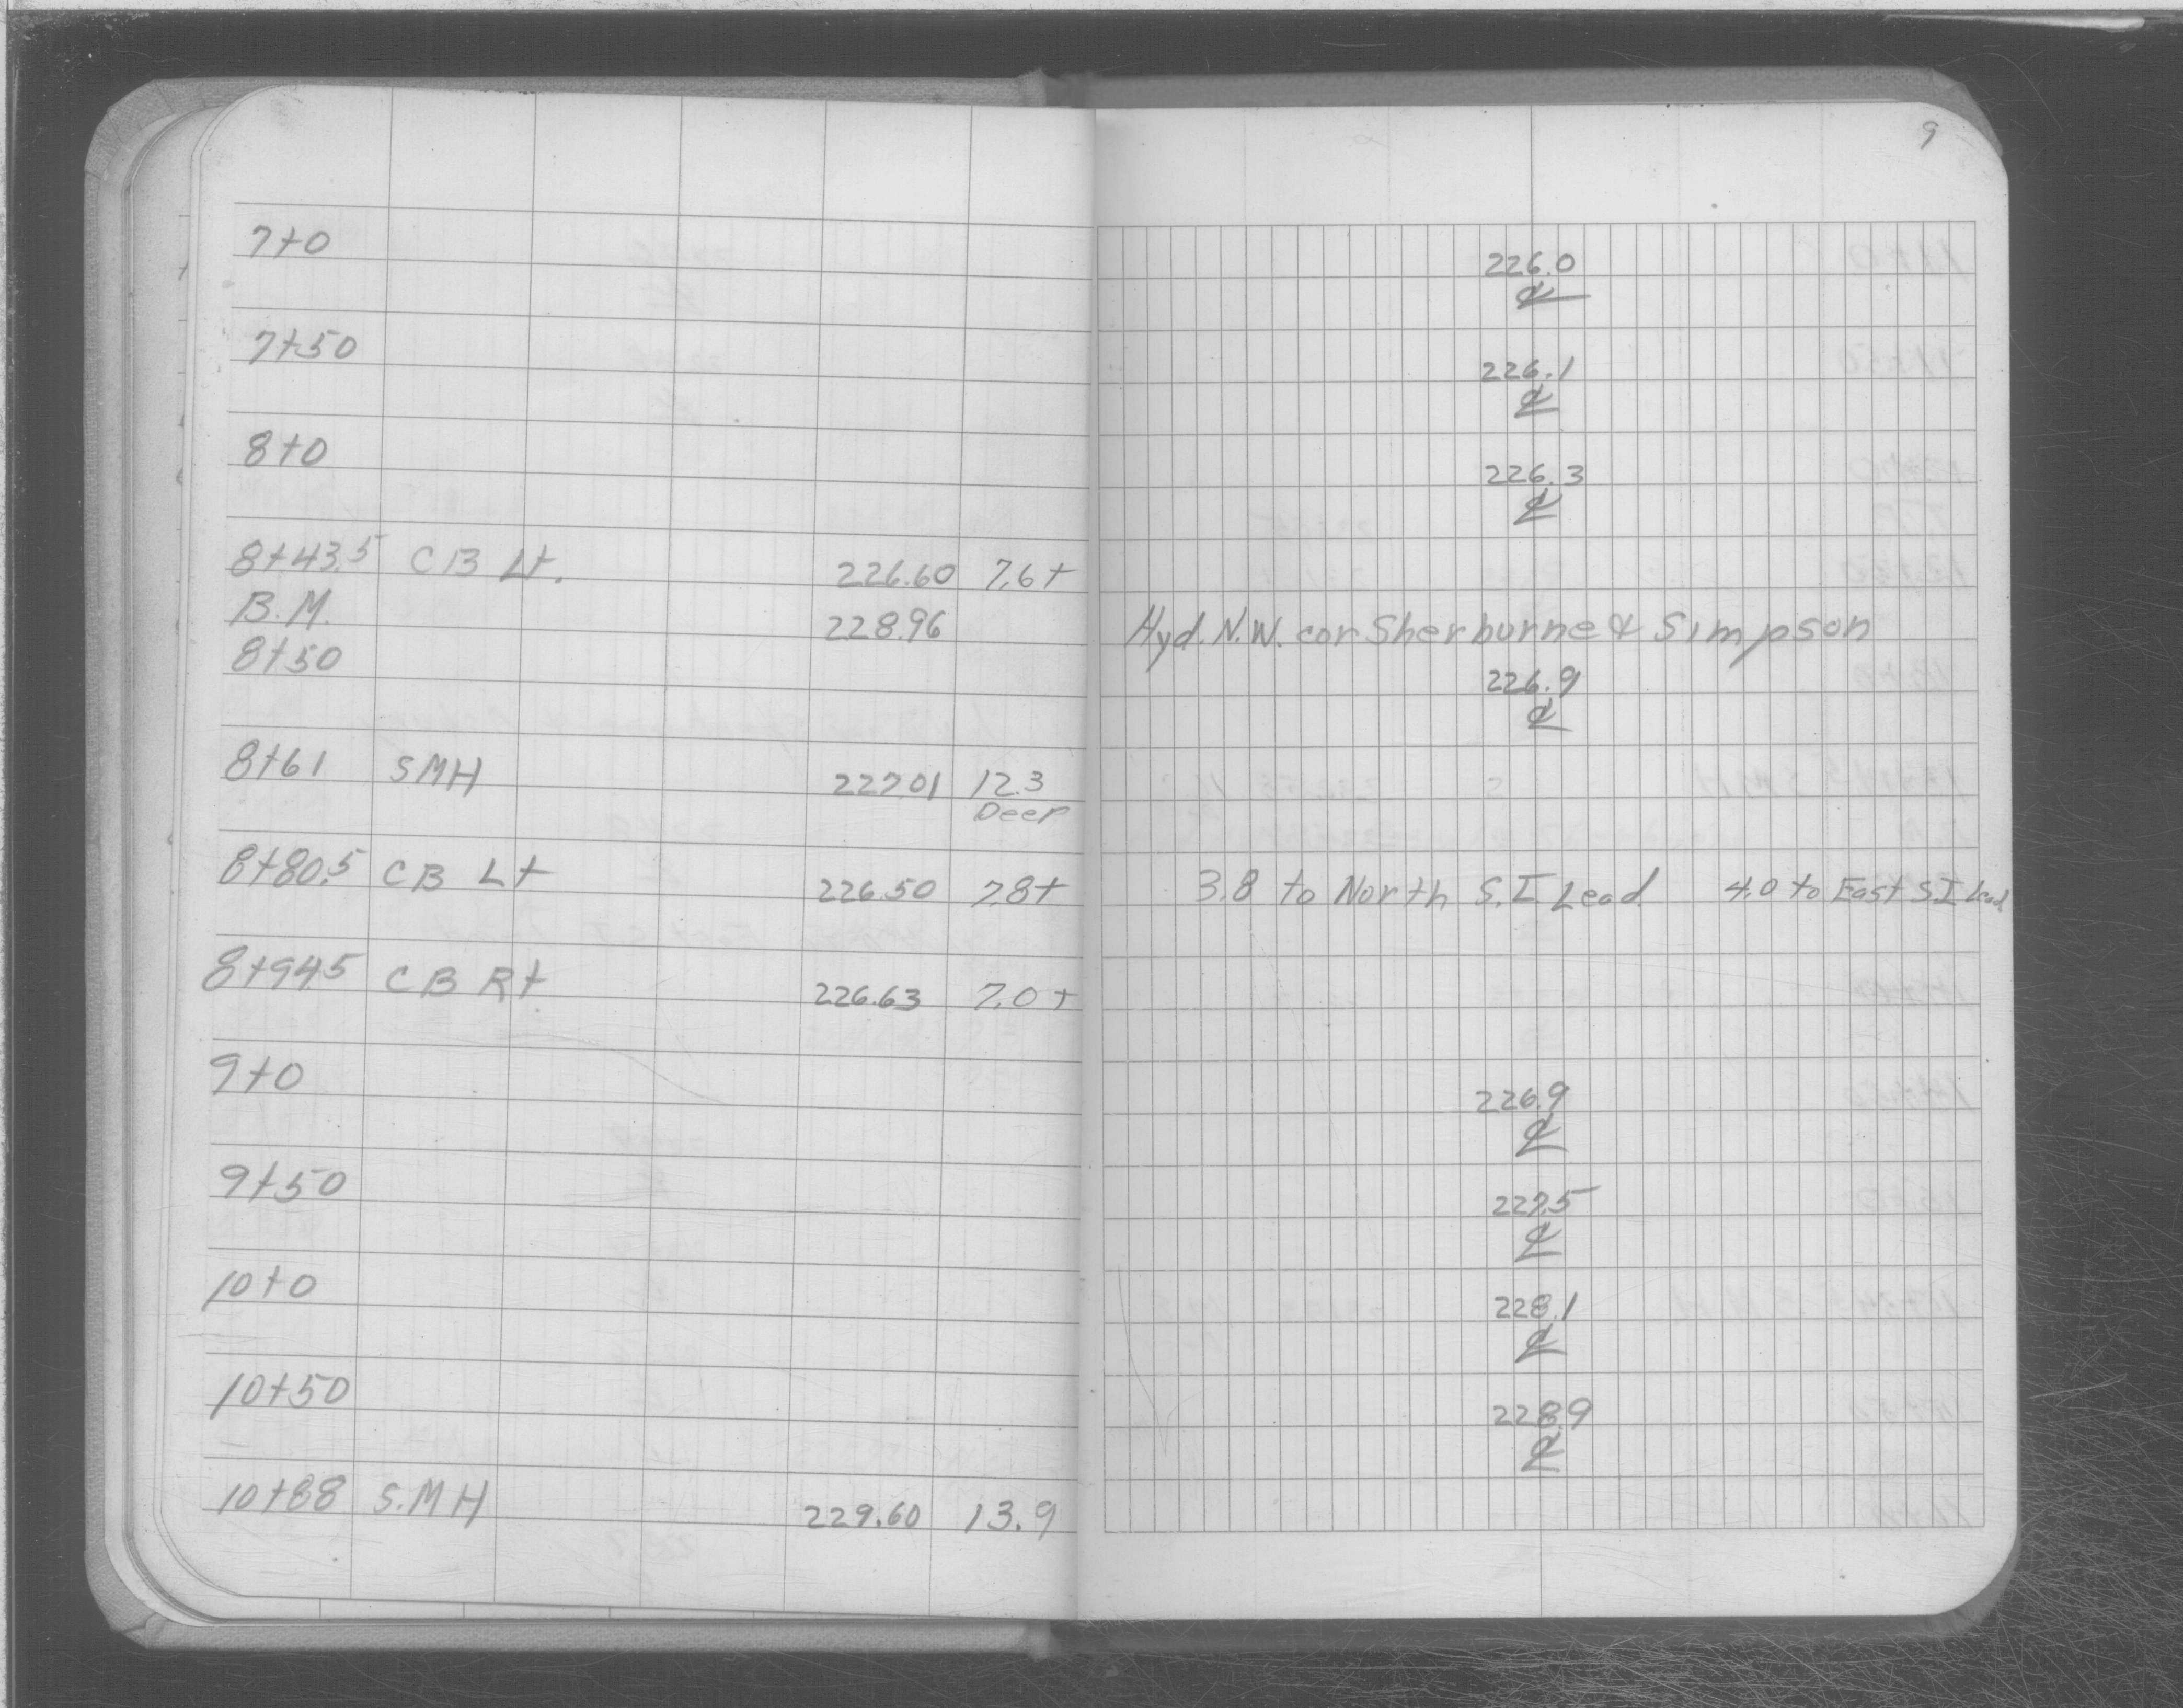 9
7+0 226.0
℄
7+50 226.1
℄
8+0 226.3
℄
8+43.5 CB Lt. 226.60 7.6+
B.M. 228.96 Hyd. N.W. cor Sherburne & Simpson
8+50 226.9
℄
8+61 SMH 227.01 12.3
Deep
8+80.5 CB Lt 226.50 7.8+ 3.8 to North S.I Lead 4.0 to East S.I Lead
8+94.5 CB Rt 226.63 7.0+
9+0 226.9
℄
9+50 227.5
℄
10+0 228.1
℄
10+50 228.9
℄
10+88 S.MH 229.60 13.9